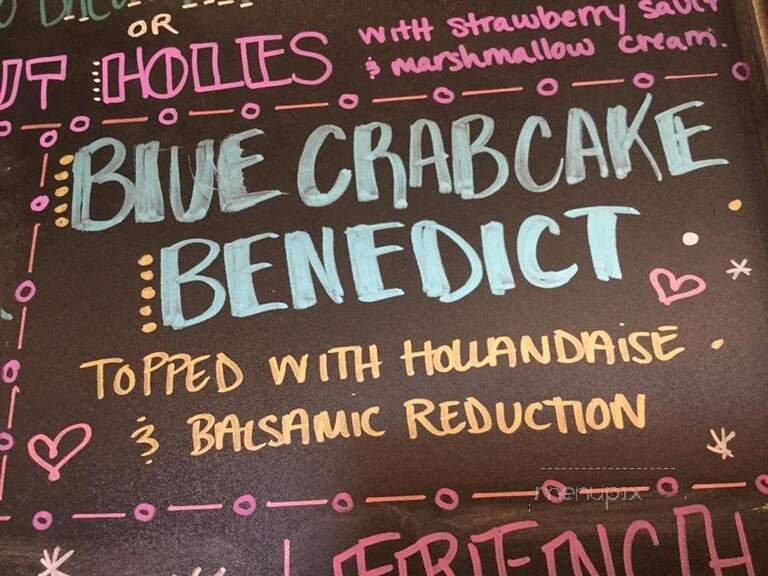 OR
HOLES
with strawberry sauce
& marshmallow cream.
BLUE CRABCAKE
BENEDICT
TOPPED WITH HOLLANDAISE
& BALSAMIC REDUCTION
menupix
FRENCH